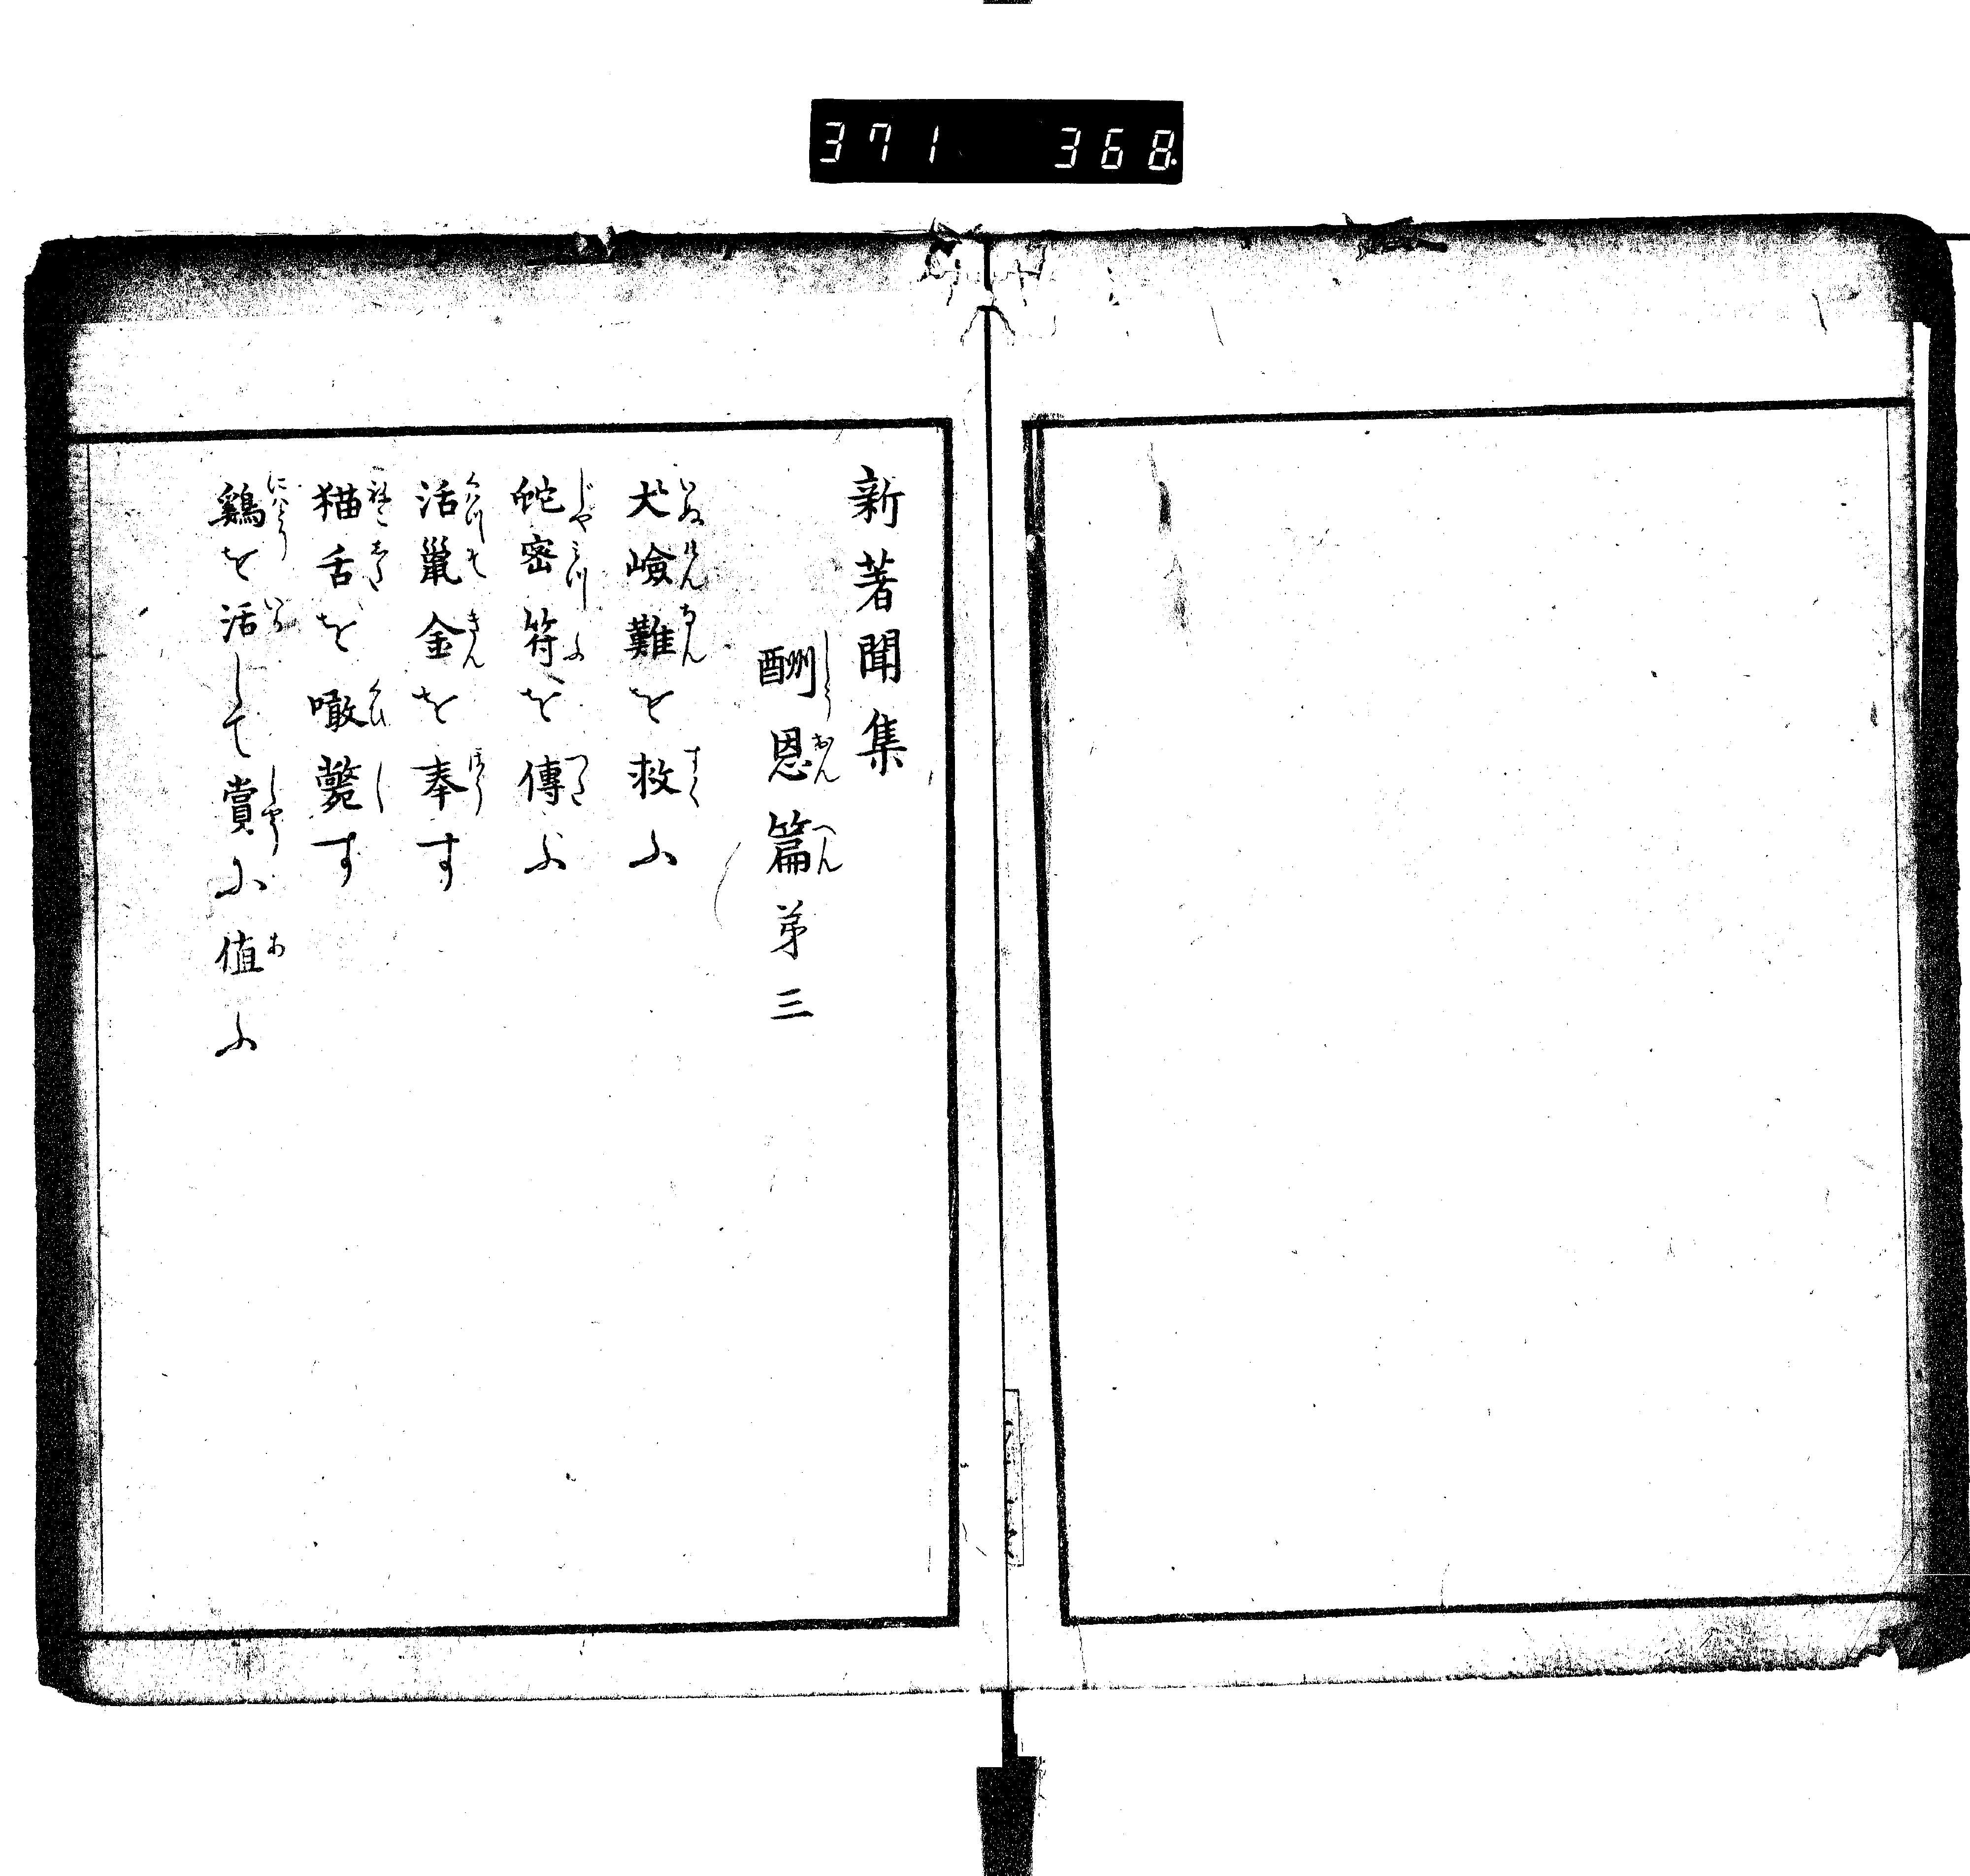 371 368
新著聞集
酬恩篇第三
犬嶮難を救ふ
蛇密符を傳ふ
活鼠金を奉す
猫舌を噉斃す
鷄を活して賞に値ふ